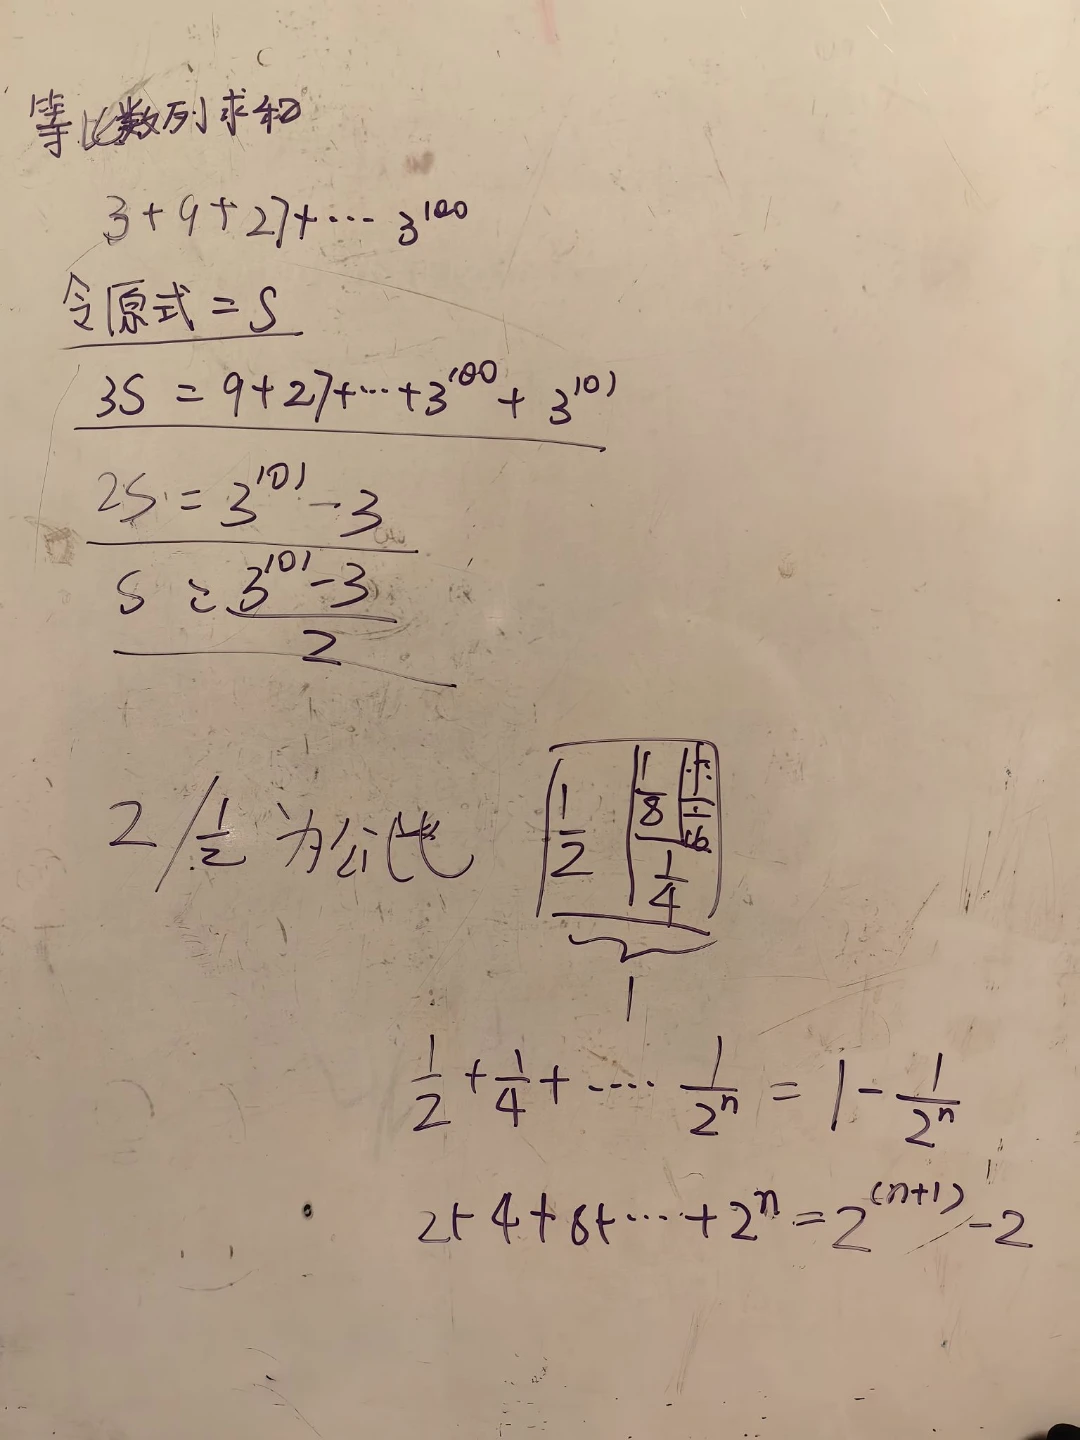 等比数列求和
3+9+27+… 3^100
令原式=S
3S = 9+27+…+3^100 + 3^101
2S = 3^101 -3
S = (3^101 -3)/2
2/½ 为公比
1/2 1/8 1/16 1/4
1
1/2 + 1/4 + …. 1/2^n = 1 - 1/2^n
2+4+8+…+2^n = 2^(n+1) -2